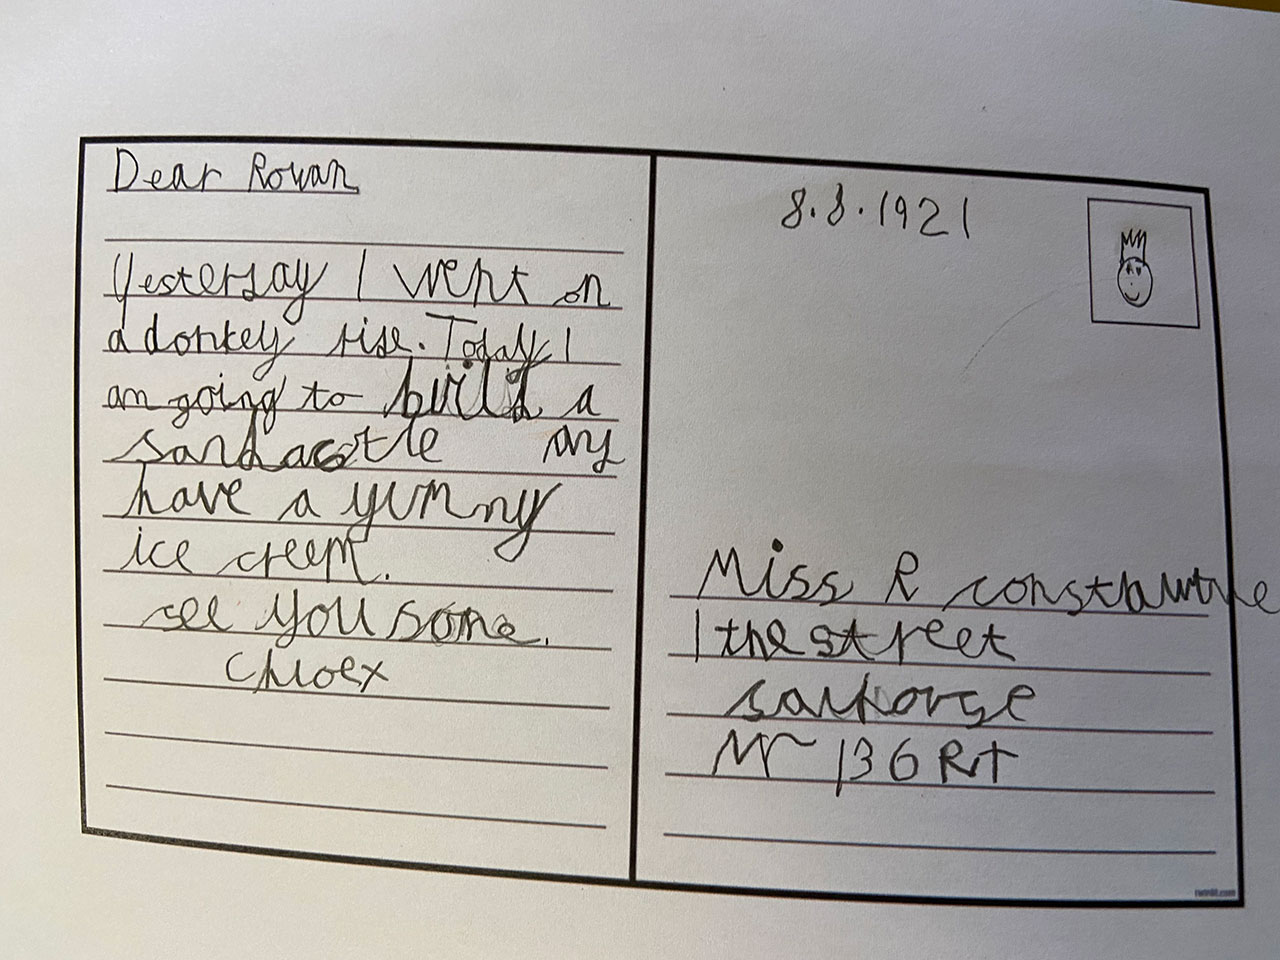 Dear Rowan
Yesterday I went on
a donkey rise. Today I
am going to build a
sandcastle any
have a yummy
ice creem.
see you some.
Chloex
8.8.1921
Miss R constantine
1 the street
salhouse
Nr 13 6 Rt
twinkl.com